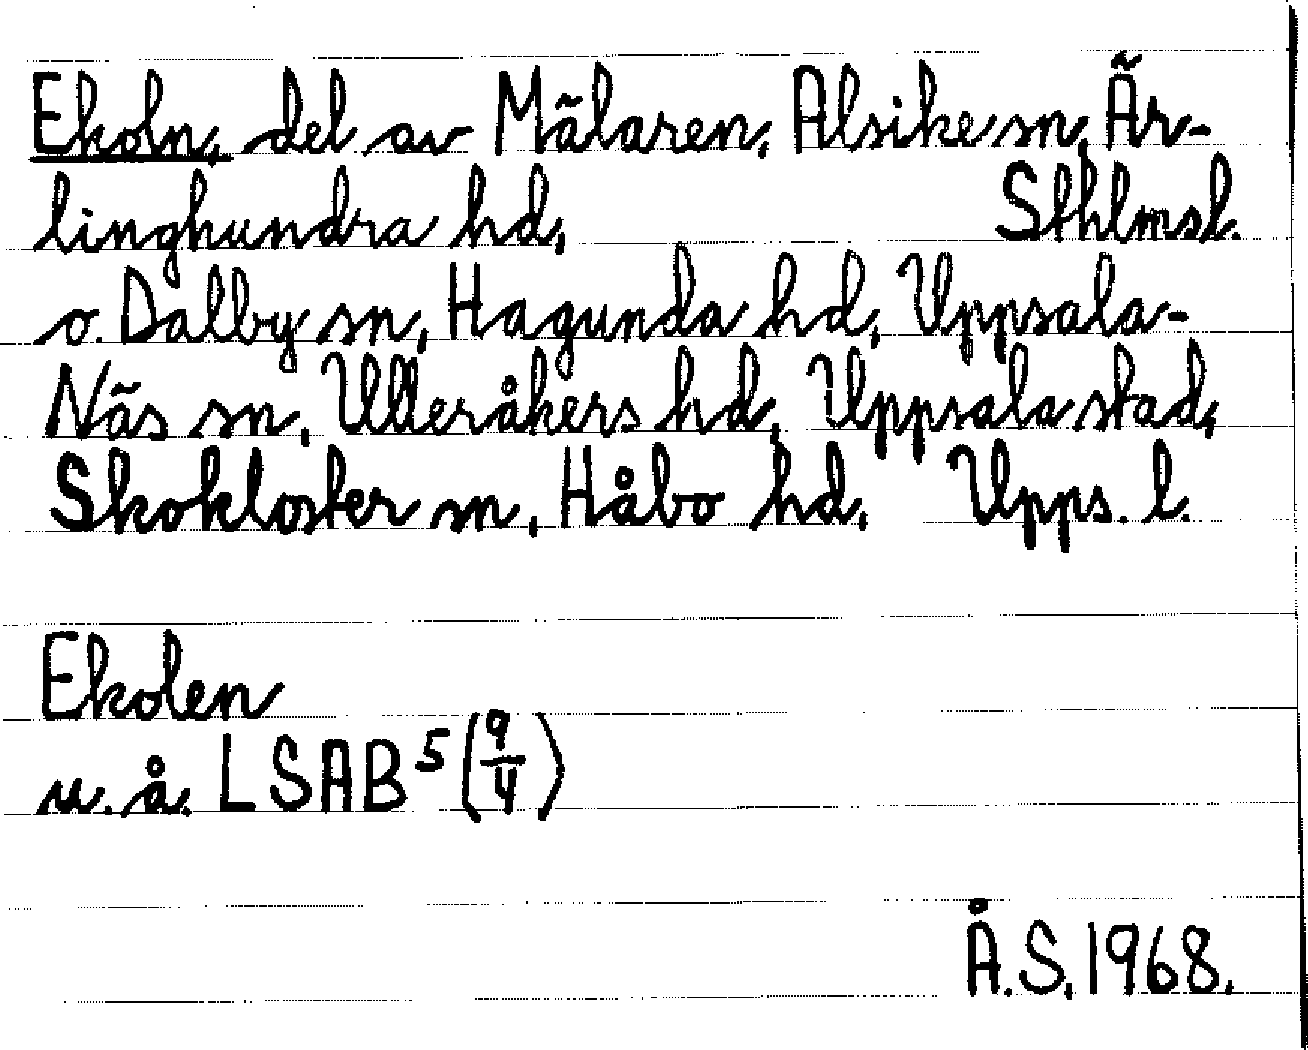 Ekoln, del av Mälaren, Alsike sn, Är-
linghundra hd, Sthlmsl.
o. Dalby sn, Hagunda hd, Uppsala-
Näs sn, Ulleråkers hd, Uppsala stad,
Skokloster sn, Håbo hd, Upps. l.
Ekolen
u. å. LSAB⁵ (9/4)
Å.S. 1968.